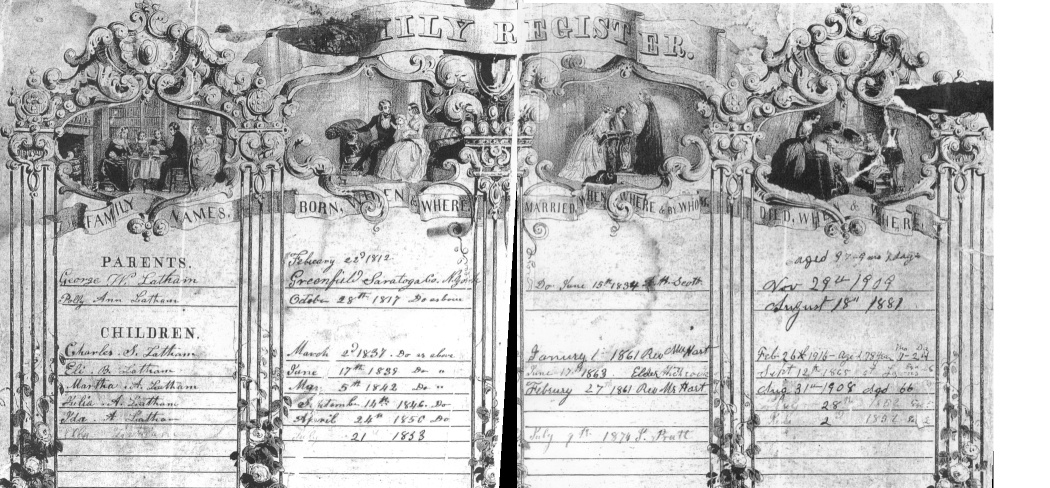 FAMILY REGISTER.
FAMILY NAMES. BORN, WHEN & WHERE MARRIED, WHEN, WHERE & BY WHOM DIED, WHEN & WHERE.
PARENTS. Febuary 22d 1812 aged 97
George W. Latham Greenfield Saratoga Co. N. York Do June 15th 1834 Scott Nov 29th 1909
Polly Ann Latham October 28th 1817 Do above August 18th 1881
CHILDREN.
Charles S. Latham March 2d 1837. Do as above January 1 1861 Rev Mr Hart Feb 26th 1916
Eli B. Latham June 17th 1839 Do " June 17th 1863 Elder Sept 12th 1865
Martha A. Latham May 5th 1842 Do " Febuary 27th 1861 Rev Mr Hart Aug 31st 1908 aged 66
Julia A. Latham September 14th 1846. Do 28th
Ida A Latham April 24th 1850 Do 2d 1852
July 21 1853 July 9th 1876 Pratt